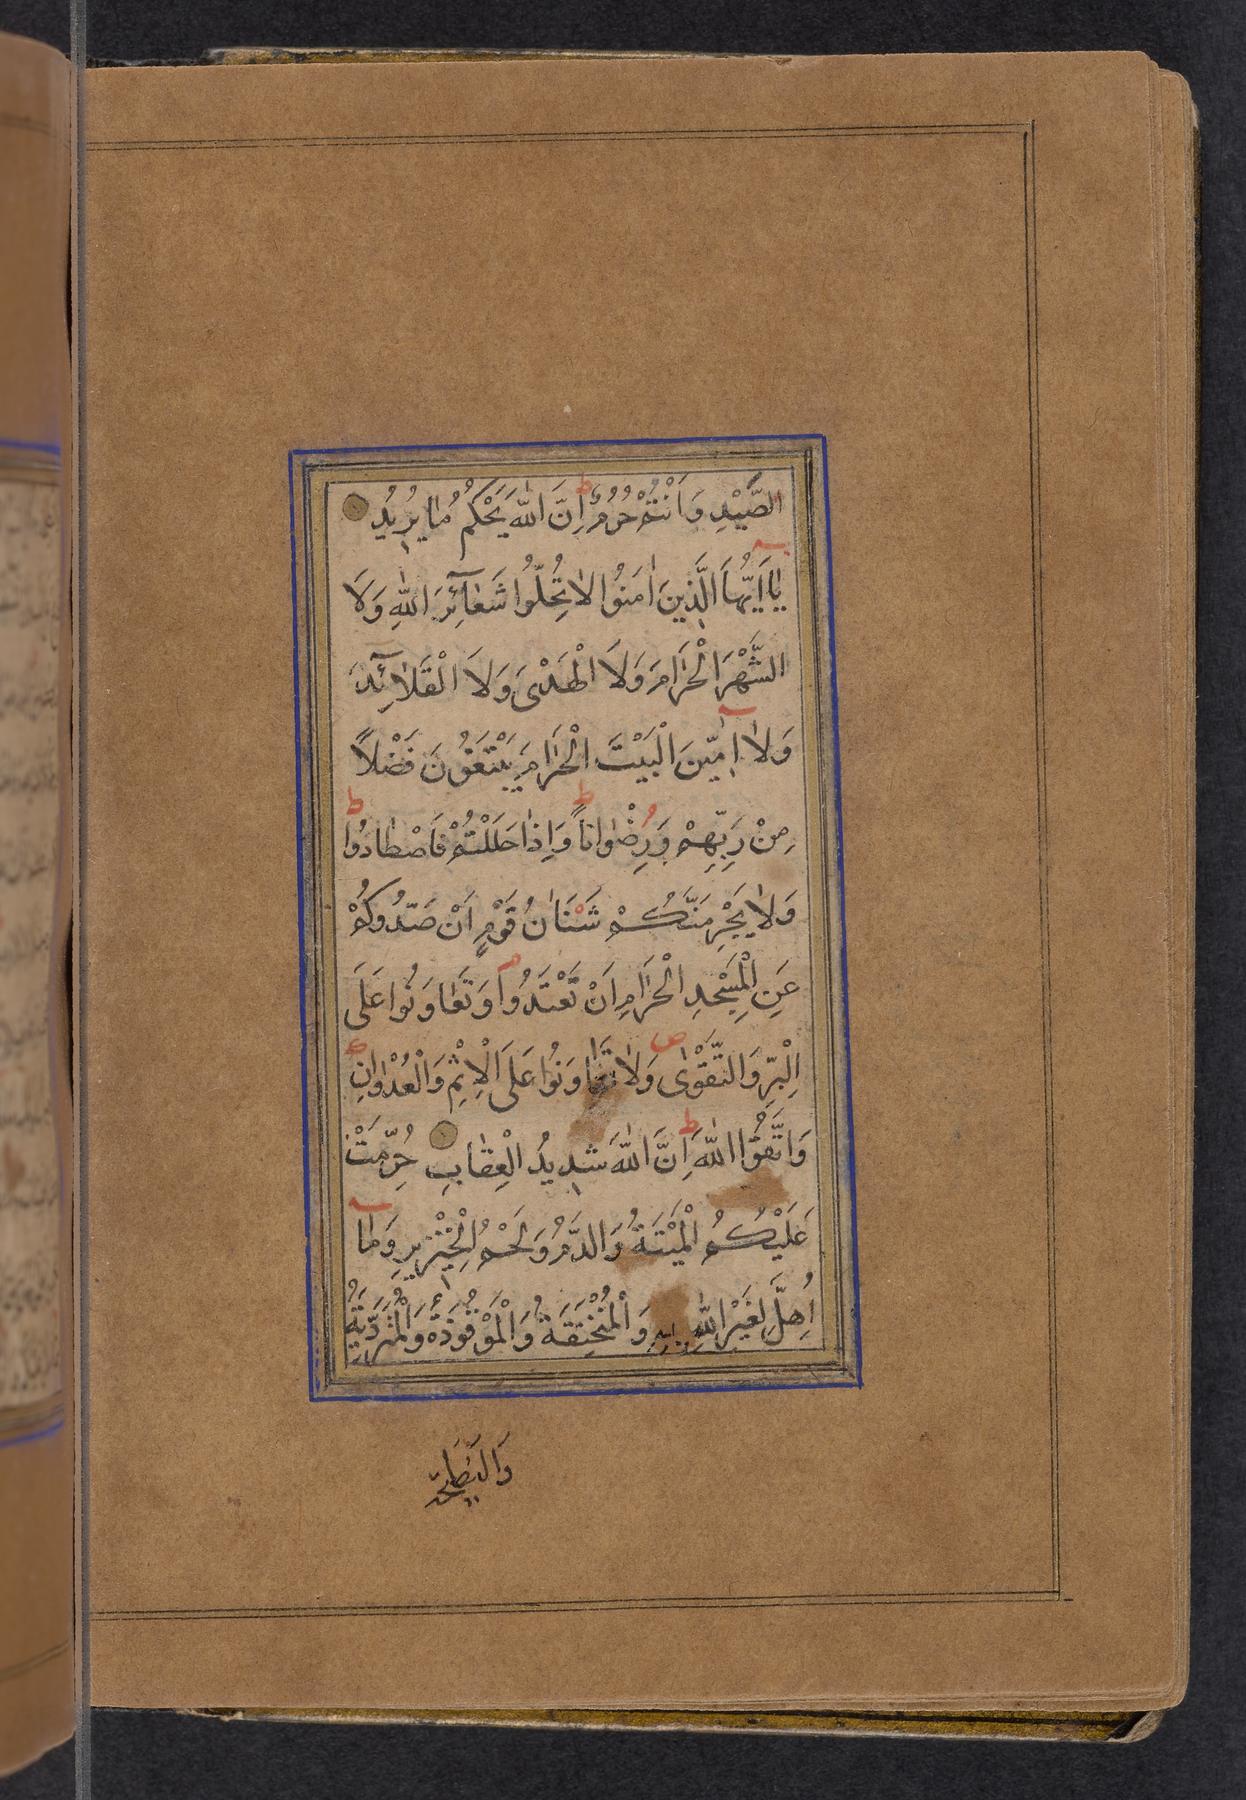 الصَّيْدِ وَاَنْتُمْ حُرُمٌ اِنَّ اللّٰهَ يَحْكُمُ مٰا يُرٖيدُ
يٰٓا اَيُّهَا الَّذٖينَ اٰمَنُوا لٰا تُحِلُّوا شَعٰٓائِرَ اللّٰهِ وَلَا
الشَّهْرَ الْحَرٰامَ وَلَا الْهَدْىَ وَلَا الْقَلٰٓائِدَ
وَلٰٓا اٰمّٖينَ الْبَيْتَ الْحَرٰامَ يَبْتَغُونَ فَضْلاً
مِنْ رَبِّهِمْ وَرِضْوٰاناً وَاِذٰا حَلَلْتُمْ فَاصْطٰادُوا
وَلٰا يَجْرِمَنَّكُمْ شَنَاٰنُ قَوْمٍ اَنْ صَدُّوكُمْ
عَنِ الْمَسْجِدِ الْحَرٰامِ اَنْ تَعْتَدُوا وَتَعٰاوَنُوا عَلَى
الْبِرِّ وَالتَّقْوٰى وَلٰا تَعٰاوَنُوا عَلَى الْاِثْمِ وَالْعُدْوٰانِ
وَاتَّقُوا اللّٰهَ اِنَّ اللّٰهَ شَدٖيدُ الْعِقٰابِ حُرِّمَتْ
عَلَيْكُمُ الْمَيْتَةُ وَالدَّمُ وَلَحْمُ الْخِنْزٖيرِ وَمٰٓا
اُهِلَّ لِغَيْرِ اللّٰهِ بِهٖ وَالْمُنْخَنِقَةُ وَالْمَوْقُوذَةُ وَالْمُتَرَدِّيَةُ
وَالنَّطٖيحَةُ